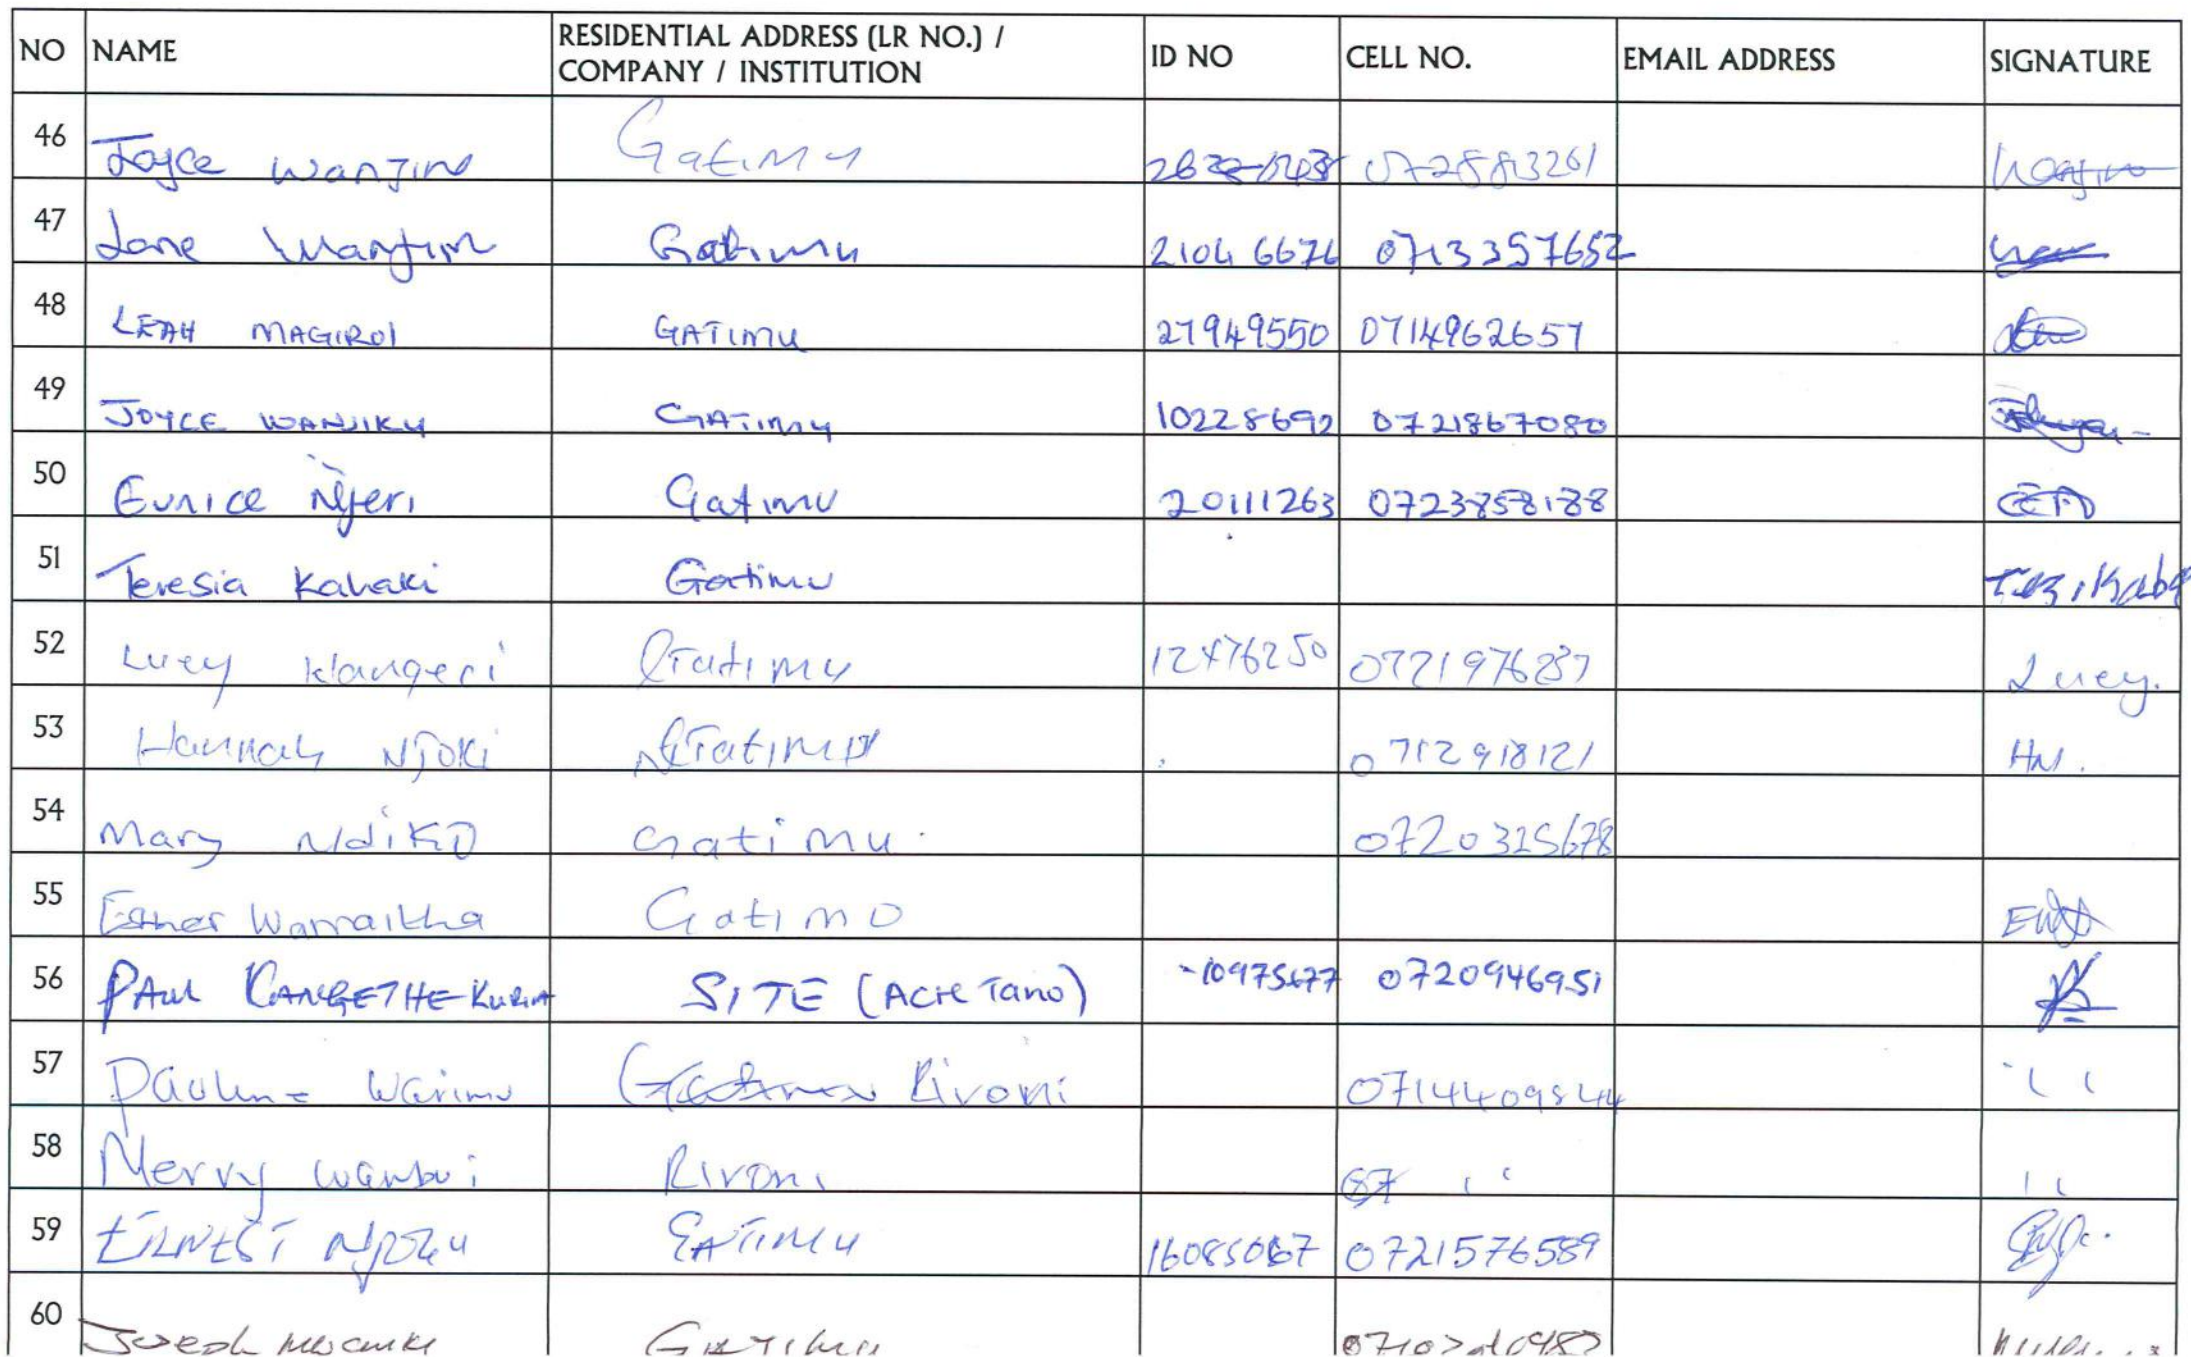 NO NAME RESIDENTIAL ADDRESS (LR NO.) / COMPANY / INSTITUTION ID NO CELL NO. EMAIL ADDRESS SIGNATURE
46 Joyce Wanjiru Gatimu
47 Jane Wanjiru Gatimu 0713357652
48 LEAH MAGIROI GATIMU 27949550 0714962657
49 JOYCE WANJIKU GATIMU 10228692 0721867080
50 Eunice Njeri Gatimu 20111263 0723858188
51 Teresia Kabaki Gatimu
52 Lucy Wangeci Gatimu 12476250 0721976237 Lucy.
53 Hannah Njoki Gatimu 0712918121 HN.
54 Mary Ndiko Gatimu. 0720325678
55 Esther Wamaitha Gatimo
56 PAUL KANGETHE KURIA SITE (ACRE TANO) 10975677 0720946951
57 Pauline Warimu Rironi 0714409844 ``
58 Mercy Wambui Rironi 07
59 ERNEST NJOGU GATIMU 16085067 0721576589
60 Joseph GATIMU